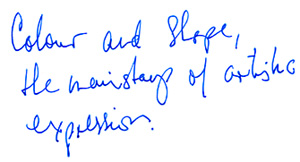 Colour and Shape,
the mainstay of artistic
expression.